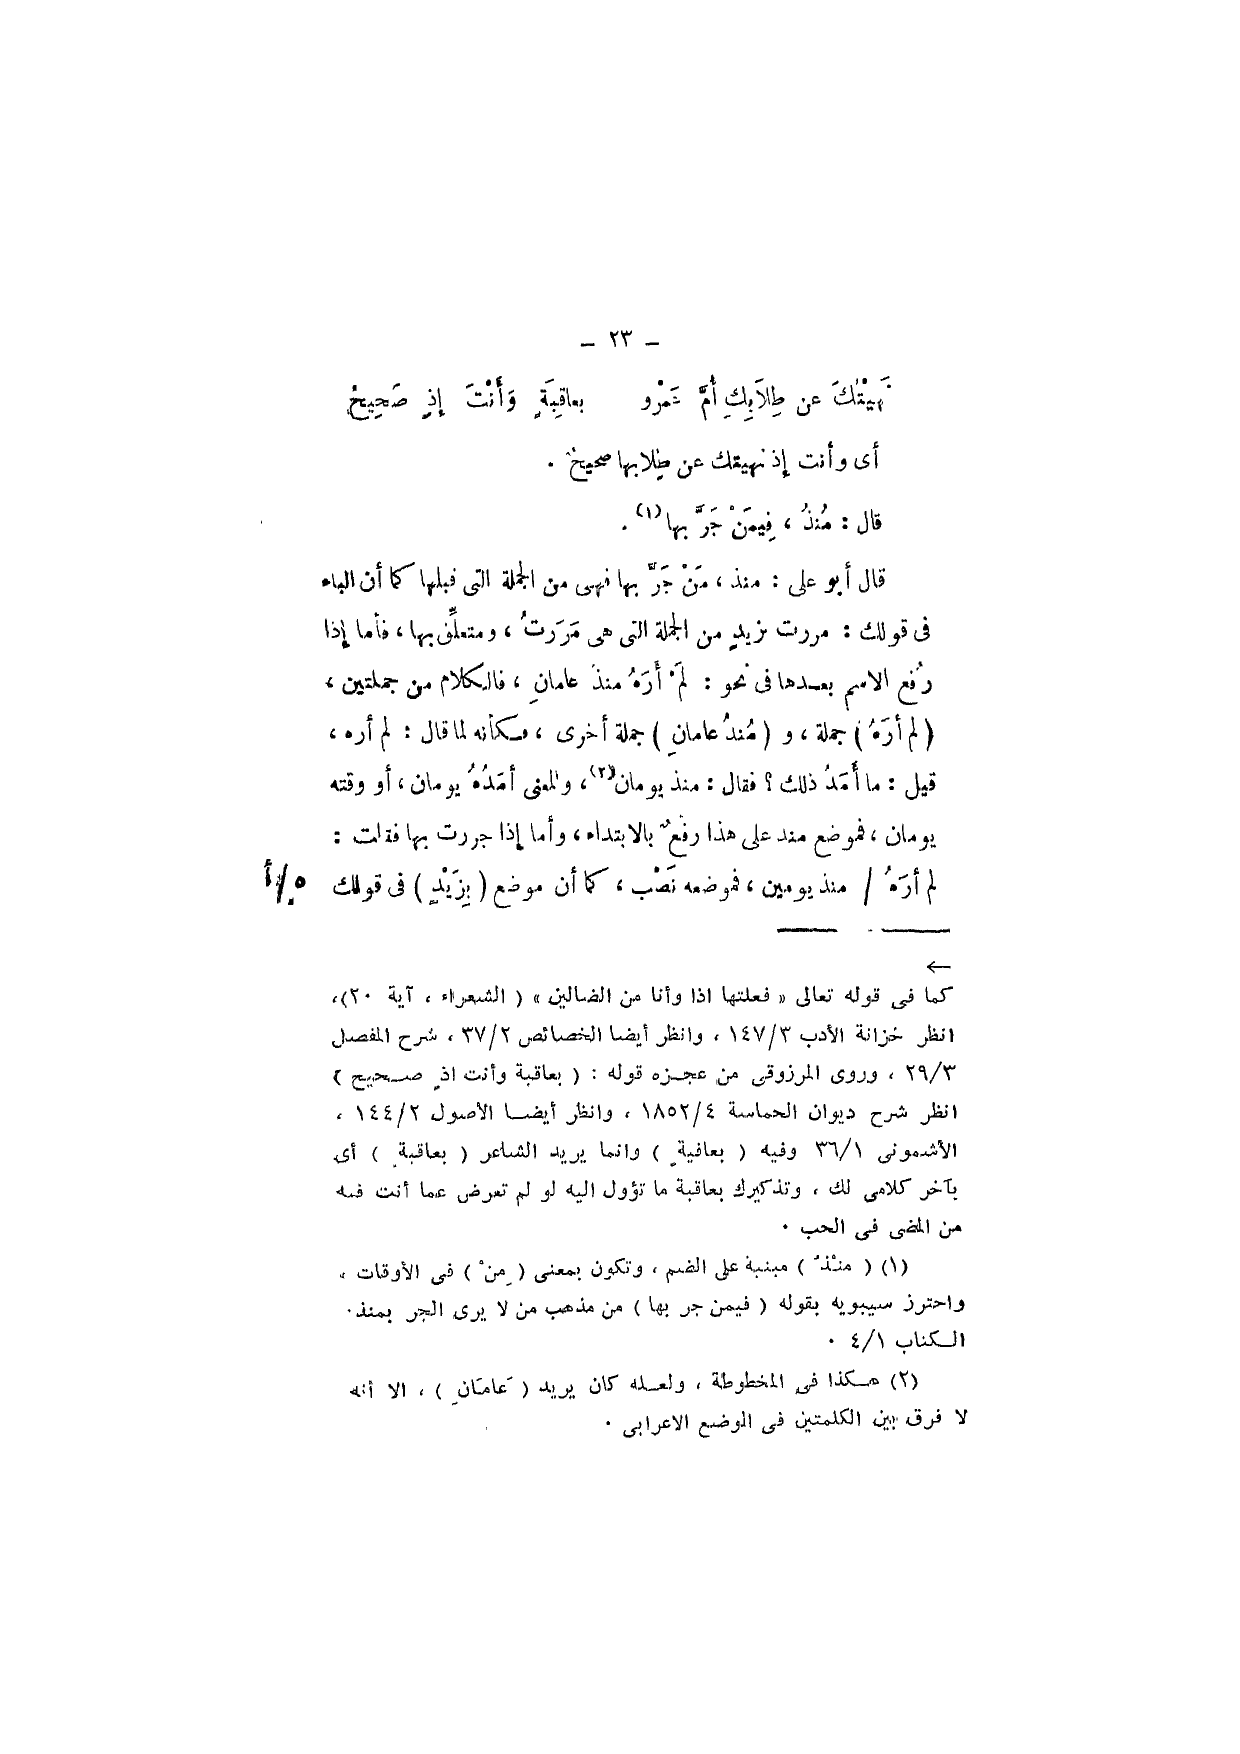 – ٢٣ –
نَهَيْتُكَ عن طِلَابِكِ أُمَّ عَمْرٍو بعاقِبَةٍ وَأَنْتَ إذٍ صَحِيحُ
أى وأنت إذ نهيتك عن طِلابها صحيحٌ .
قال : مُنذُ ، فِيمَنْ جَرَّ بها(١) .
قال أبو على : منذ ، مَنْ جَرَّ بها فهى من الجملة التى قبلها كما أن الباء
فى قولك : مررت بزيدٍ من الجملة التى هى مَرَرتُ ، ومتعلِّق بها ، فأما إذا
رُفع الاسم بعدها فى نحو : لَمْ أَرَهُ منذ عامانِ ، فالكلام من جملتين ،
( لم أرَهُ ) جملة ، و ( مُنذُ عامانِ ) جملة أخرى ، فكأنه لما قال : لم أره ،
قيل : ما أَمَدُ ذلك ؟ فقال : منذ يومان(٢)، والمعنى أمَدُهُ يومان ، أو وقته
يومان ، فموضع منذ على هذا رفعٌ بالابتداء ، وأما إذا جررت بها فقلت :
لم أرَهُ / منذ يومين ، فموضعه نَصْب ، كما أن موضع ( بِزَيْدٍ ) فى قولك ٥/أ
←
كما فى قوله تعالى « فعلتها اذا وأنا من الضالين » ( الشعراء ، آية ٢٠)،
انظر خزانة الأدب ١٤٧/٣ ، وانظر أيضا الخصائص ٣٧/٢ ، شرح المفصل
٢٩/٣ ، وروى المرزوقى من عجزه قوله : ( بعاقبة وأنت اذٍ صحيح )
انظر شرح ديوان الحماسة ١٨٥٢/٤ ، وانظر أيضا الأصول ١٤٤/٢ ،
الأشمونى ٣٦/١ وفيه ( بعافيةٍ ) وانما يريد الشاعر ( بعاقبةٍ ) أى
بآخر كلامى لك ، وتذكيرك بعاقبة ما تؤول اليه لو لم تعرض عما أنت فيه
من المضى فى الحب ٠
(١) ( منْذُ ) مبنية على الضم ، وتكون بمعنى ( مِنْ ) فى الأوقات ،
واحترز سيبويه بقوله ( فيمن جر بها ) من مذهب من لا يرى الجر بمنذ٠
الكتاب ٤/١ ٠
(٢) هكذا فى المخطوطة ، ولعله كان يريد ( عَامَانِ ) ، الا أنه
لا فرق بين الكلمتين فى الوضع الاعرابى ٠